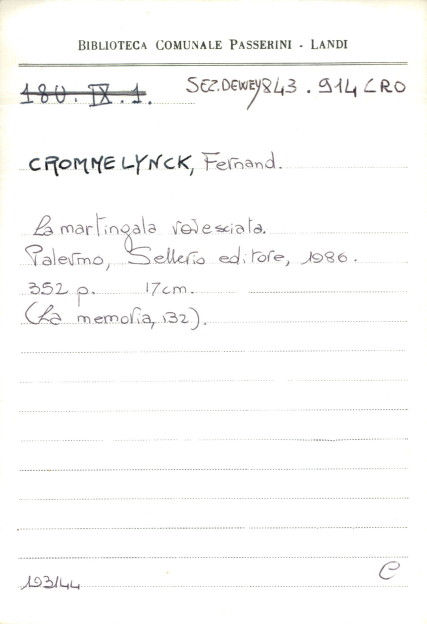 BIBLIOTECA COMUNALE PASSERINI - LANDI
180. IX. 1. SEZ. DEWEY 843.914 CRO
CROMMELYNCK, Fernand.
La martingala rovesciata.
Palermo, Sellerio editore, 1986.
352 p. 17cm.
(La memoria, 132).
193144 C